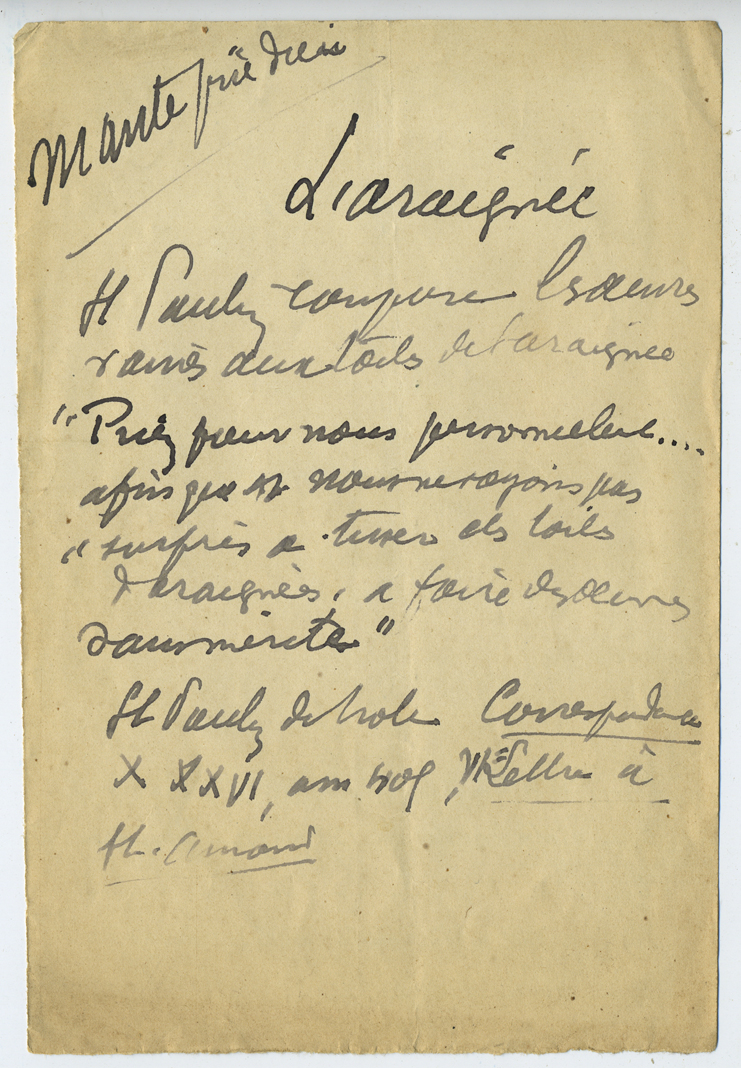 Mante prie dieu
L'araignée
St Paulin compare les œuvres
vaines aux toiles de l'araignée
"Priez pour nous personnellement....
afin que nous ne soyons pas
"surpris a tisser des toiles
d'araignées, a faire des œuvres
sans mérites"
St Paulin de Nole Correspondance
XXXVI, ann 408, VIe Lettre à
St. Amand